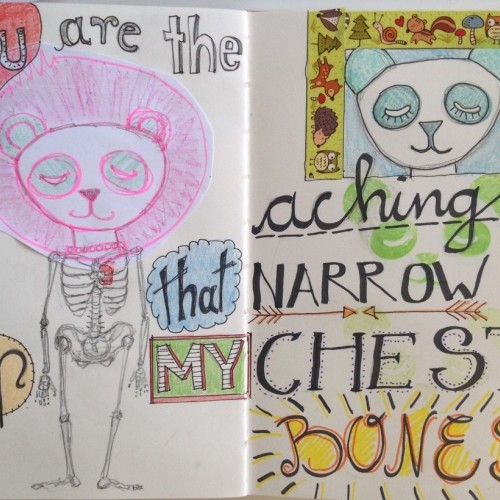 u are the
that
MY
aching
NARROW
CHEST
BONES